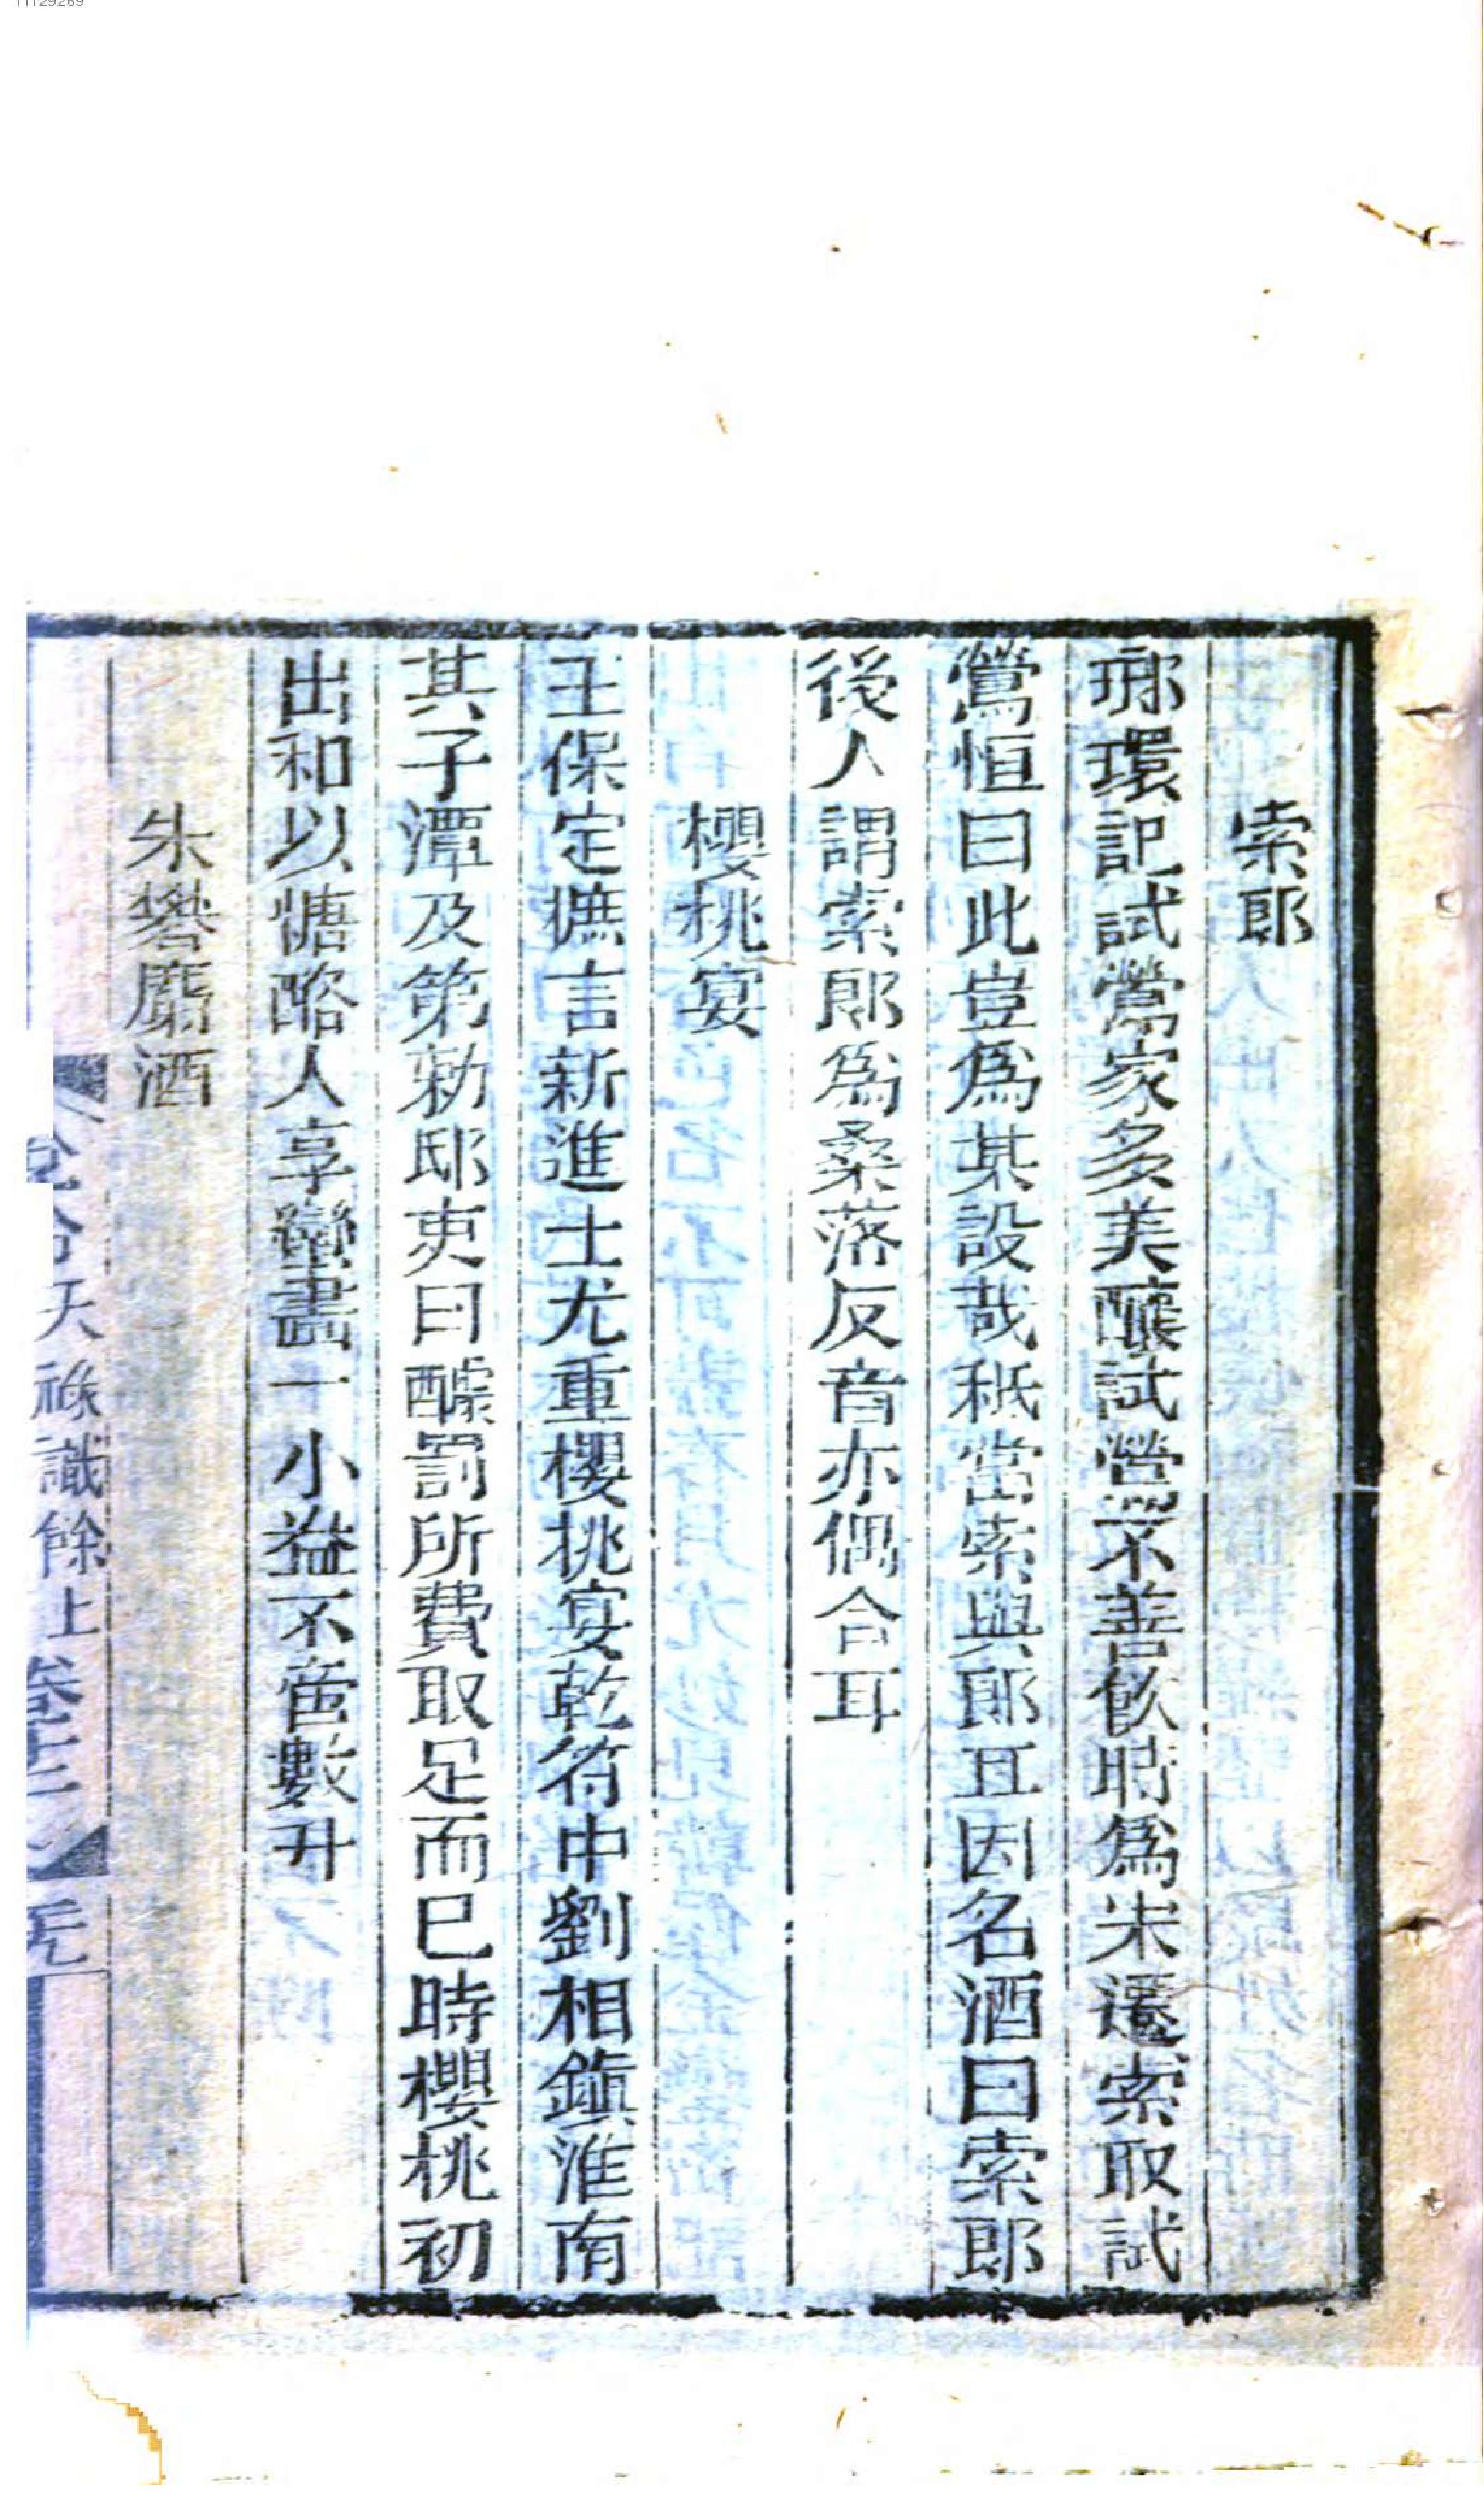 索郎
琊環記試鶯家多美釀試鶯不善飲時爲宋遷索取試
鶯恒曰此豈爲某設哉秪當索與郎耳因名酒曰索郎
後人謂索郎爲桑落反音亦偶合耳
櫻桃宴
王保定摭言新進士尤重櫻桃宴乾符中劉相鎮淮南
其子潭及第勑邸吏曰醵罰所費取足而已時櫻桃初
出和以糖酪人享蠻畵一小益不啻數升
朱礬麝酒
天祿識餘上